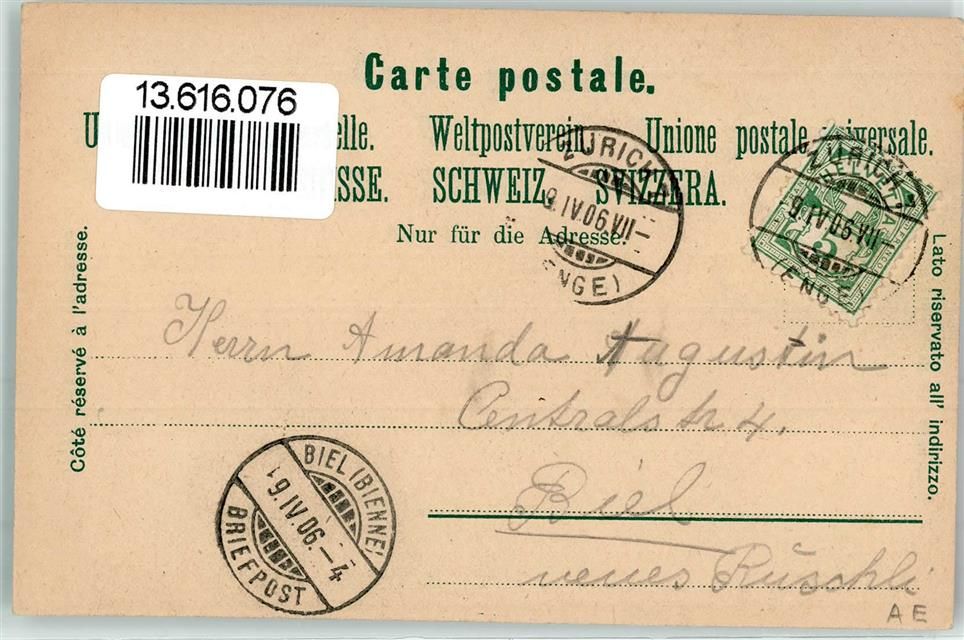 Carte postale.
13.616.076
Weltpostverein. Unione postale universale.
SCHWEIZ. SVIZZERA.
Nur für die Adresse.
ZÜRICH
9.IV.06.VII–
(ENGE)
ZÜRICH
HELVETIA
5
9.IV.06.VII–
(ENGE)
Côté réservé à l'adresse.
Lato riservato all' indirizzo.
Herrn Amanda Augustin
Centralstr 4.
Biel
neues Rüschli
BIEL (BIENNE)
9.IV.06.–4
BRIEFPOST
AE